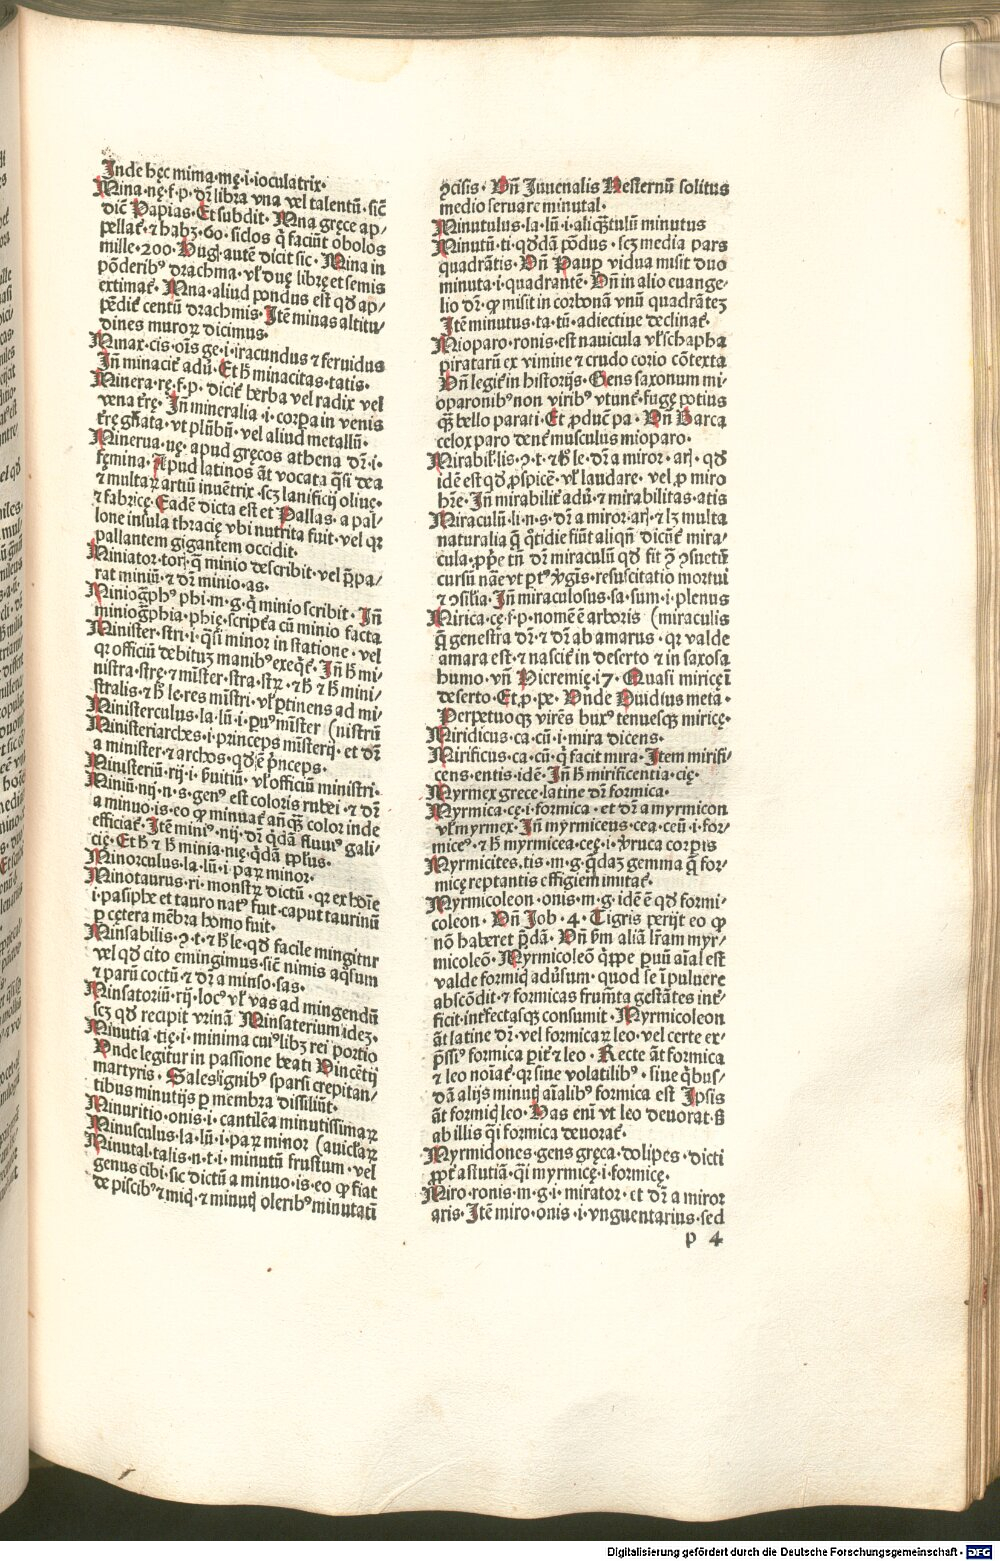 Inde hęc mima·mę·i·ioculatrix·
Mina·nę·f·p·dr̄ libra vna vel talentū·sic̄
dic̄ Papias·Et subdit·Mna gręce ap/
pellat̄·⁊ habꝫ·60·siclos q̄ faciūt obolos
mille·200·Hug̉ autē dicit sic·Mina in
pōderibꝰ drachma·vl̄ duę librę et semis
extimat̄·Mna·aliud pondus est qd̓ ap/
pēdit̄ centū drachmis·Itē minas altitu/
dines muroꝝ dicimus·
Minax·cis·oīs ge·i·iracundus ⁊ feruidus
Iñ minacit̄ adū·Et h̄ minacitas·tatis·
Minera·rę·f·p·dicit̄ herba vel radix vel
vena tr̄ę·Iñ mineralia·i·corꝑa in venis
tr̄ę gn̄ata·vt plūbū·vel aliud metallū·
Minerua·nę·apud gręcos athena dr̄·i·
fęmina·Apud latinos āt vocata q̄si dea
⁊ multaꝝ artiū inuētrix·scꝫ lanificij oliuę·
⁊ fabricę·Eadē dicta est et Pallas·a pal/
lone insula thracię vbi nutrita fuit·vel qꝛ
pallantem gigantem occidit·
Miniator·torꝭ·q̄ minio describit·vel p̄pa/
rat miniū·⁊ dr̄ minio·as·
Minioḡphꝰ phi·m·g·q̄ minio scribit·Iñ
minioḡphia·phię·scriptᷓa cū minio facta
Minister·stri·i·q̄si minor in statione·vel
qꝛ officiū debituꝫ manibꝰ exeq̄t̄·Iñ h̄ mi/
nistra·strę·⁊ mister·stra·stꝝ·⁊ h̄ ⁊ h̄ mini/
stralis·⁊ h̄ le·res mīstri·vl̄ ꝑtinens ad mi/
Ministerculus·la·lū·i·puꝰ mīster (nistrū
Ministeriarches·i·princeps mīsterij·et dr̄
a minister·⁊ archos·qd̓ ē p̄nceps·
Ministeriū·rij·i·ẜuitiū·vl̄ officiū ministri·
Miniū·nij·n·s·genꝰ est coloris rubei·⁊ dr̄
a minuo·is·eo ꝙ minuat̄ anq̄ꝫ color inde
efficiat̄·Itē miniꝰ·nij·dr̄ q̄dā fluuiꝰ gali/
cię·Et h̄ ⁊ h̄ minia·nię·q̄dā ppl̄us·
Minorculus·la·lū·i·paꝝ minor·
Minotaurus·ri·monstꝝ dictū·qꝛ ex hoīe
i·pasiphe et tauro natꝰ fuit·caput taurinū
ꝑ cętera mēbra homo fuit·
Minsabilis·ꝯ·t·⁊ h̄ le·qd̓ facile mingitur
vel qd̓ cito emingimus·sic̄ nimis aq̄sum
⁊ parū coctū·⁊ dr̄ a minso·sas·
Minsatoriū·rij·locꝰ vl̄ vas ad mingendū
scꝫ qd̓ recipit vrinā Minsaterium idez·
Minutia·tię·i·minima cuiꝰlibꝫ rei portio
Vnde legit̄ur in passione beati Vincētij
martyris·Sales ignibꝰ sparsi crepitan/
tibus minutijs ꝑ membra dissiliūt·
Minuritio·onis·i·cantilēa minutissimaꝝ
Minusculus·la·lū·i·paꝝ minor (auiculaꝝ
Minutal·talis·n·t·i·minutū frustum·vel
genus cibi·sic dictū a minuo·is·eo ꝙ fiat
de piscibꝰ ⁊ miq̓·⁊ minuq̓ oleribꝰ minutati
ꝯcisis·Vñ Juuenalis Hesternū solitus
medio seruare minutal·
Minutulus·la·lū·i·aliq̄tulū minutus
Minutū·ti·qd̓dā pōdus·scꝫ media pars
quadrātis·Vñ Pauꝑ vidua misit duo
minuta·i·quadrantē·Vñ in alio euange/
lio dr̄·ꝙ misit in corbonā vnū quadrātez
Itē minutus·ta·tū·adiectiue declinat̄·
Mioparo·ronis·est nauicula vl̄ schapha
piratarū ex vimine ⁊ crudo corio cōtexta
Vñ legit̄ in historijs·Gens saxonum mi/
oparonibꝰ non viribꝰ vtunt̄·fugę potius
q̄ꝫ bello parati·Et ꝓducit̄ pa·Vñ Barca
celox paro dent̄ musculus mioparo·
Mirabil̓·lis·ꝯ·t·⁊ h̄ le·dr̄ a miror·arꝭ·qd̓
idē est qd̓ ꝓspicē·vl̄ laudare·vel ꝓ miro
hr̄e·Iñ mirabilit̄ adū·⁊ mirabilitas·atis
Miraculū·li·n·s·dr̄ a miror·arꝭ·⁊ lꝫ multa
naturalia q̄ q̄tidie fiūt aliqn̄ dicūt̄ mira/
cula·ꝓp̄e tn̄ dr̄ miraculū qd̓ fit ꝯ̄ ꝯsuetū
cursū nāe vt pt̓ꝰ ꝟgīs·resuscitatio mortui
⁊ ꝯsilia·Iñ miraculosus·sa·sum·i·plenus
Mirica·cę·f·p·nomē ē arboris (miraculis
q̄ genestra dr̄·⁊ dr̄ ab amarus·qꝛ valde
amara est·⁊ nascit̄ in deserto ⁊ in saxosa
humo·vñ Hieremię·17·Quasi miricę ī
deserto·Et ꝓ·pe·Vnde Ouidius metā·
Perpetuoqꝫ virēs buxꝰ tenuesqꝫ miricę·
Miridicus·ca·cū·i·mira dicens·
Mirificus·ca·cū·q̓ facit mira·Item mirifi/
cens·entis·idē·Iñ h̄ mirificentia·cię·
Myrmex grece·latine dr̄ formica·
Myrmica·cę·i·formica·et dr̄ a myrmicon
vl̄ myrmex·Iñ myrmiceus·cea·ceū·i·for/
miceꝰ·⁊ h̄ myrmicea·ceę·i·ꝟruca corꝑis
Myrmicites·tis·m·g·q̄daꝫ gemma q̄ for/
micę reptantis effigiem imitat̄·
Myrmicoleon·onis·m·g·idē ē qd̓ formi/
coleon·Vñ Job·4·Tigris perijt eo ꝙ
nō haberet p̄dā·Vñ ẜm aliā lr̄am myr/
micoleō·Myrmicoleō q̄ppe ꝑuū aīal est
valde formicꝭ aduẜsum·quod se ī puluere
abscōdit·⁊ formicas frum̄ta gestātes int̄/
ficit·int̄fectasqꝫ consumit·Myrmicoleon
āt latine dr̄·vel formicaꝝ leo·vel certe ex/
p̄ssiꝰ formica ꝑit̄ ⁊ leo·Recte āt formica
⁊ leo noīat̄·qꝛ siue volatilibꝰ·siue q̄bus/
dā alijs minutꝭ aīalibꝰ formica est Ipsis
āt formicꝭ leo·Has enī vt leo deuorat·ẜ
ab illis q̄i formica deuorat̄·
Myrmidones·gens gręca·dolipes·dicti
ꝓpt̄ astutiā·q̄i myrmicę·i·formicę·
Miro·ronis·m·g·i·mirator·et dr̄ a miror
aris·Itē miro·onis·i·vnguentarius·sed
p 4
Digitalisierung gefördert durch die Deutsche Forschungsgemeinschaft - DFG